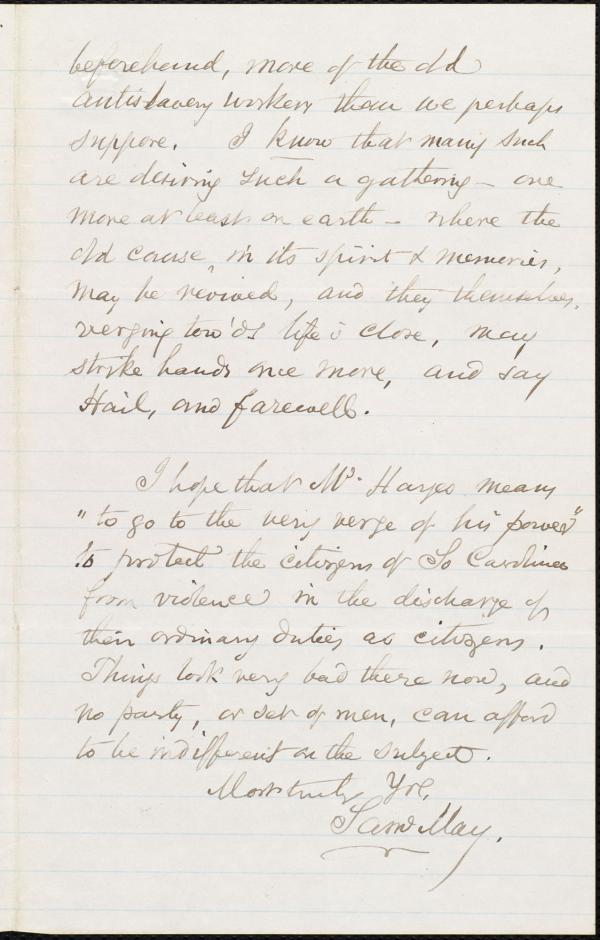 beforehand, more of the old
antislavery workers than we perhaps
suppose. I know that many such
are desiring such a gathering - one
more at least on earth - where the
old cause, in its spirit & memories,
may be revived, and they themselves,
verging tow'ds life's close, may
strike hands once more, and say
Hail, and farewell.
I hope that Mr. Hayes means
"to go to the very verge of his power"
to protect the citizens of So Carolina
from violence in the discharge of
their ordinary duties as citizens.
Things look very bad there now, and
no party, or set of men, can afford
to be indifferent on the subject.
Most truly Yrs,
Saml May.